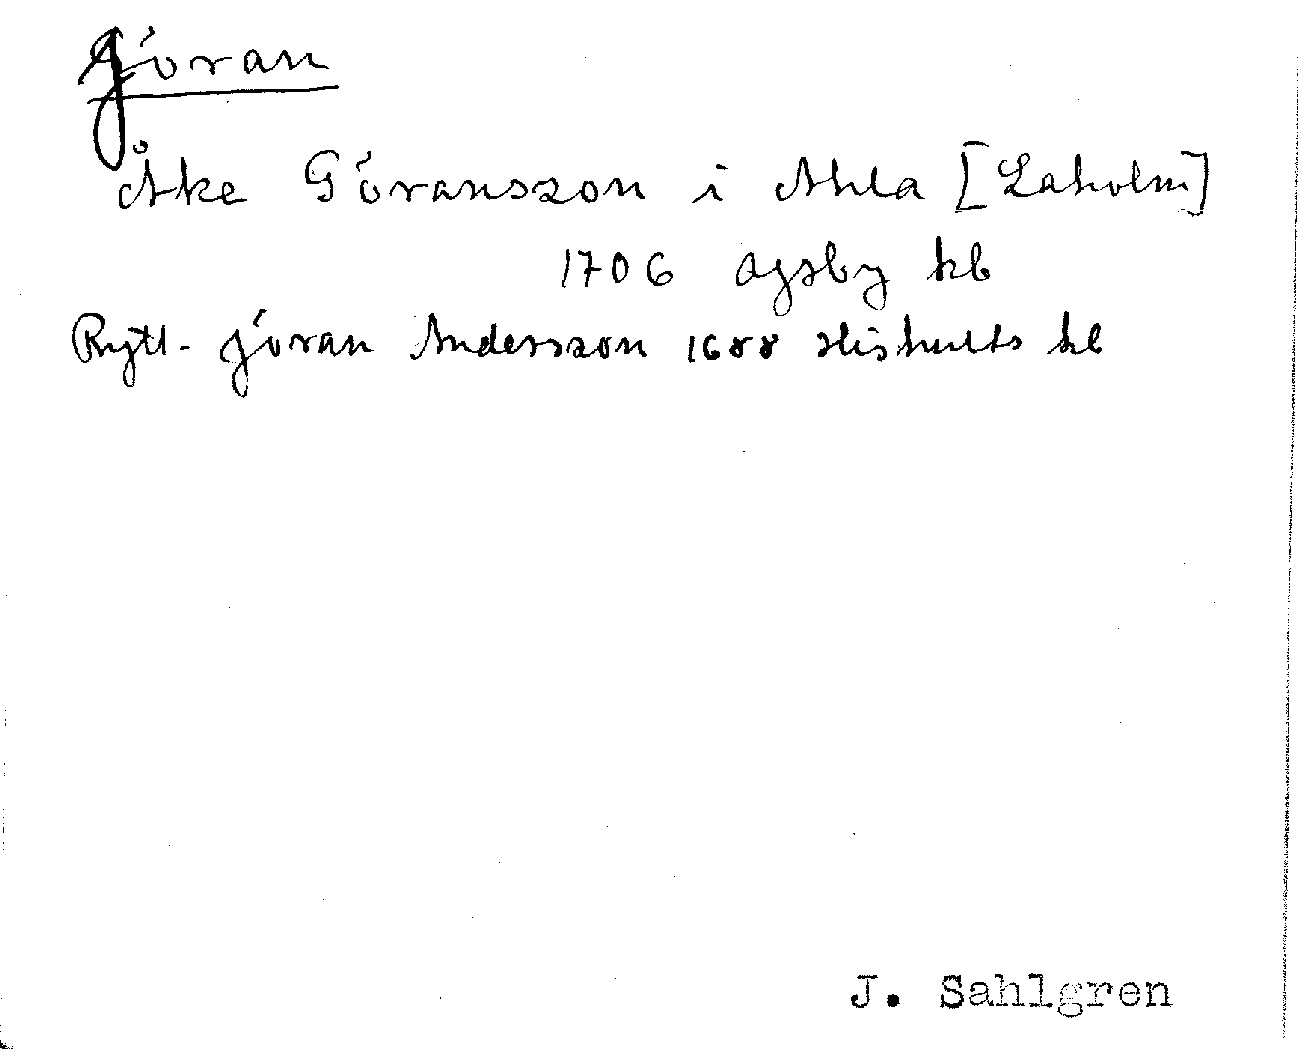 Jöran
Åke Göransson i Ahla [Laholm]
1706 Ysby kb
Rytt. Jöran Andersson 1688 Hishults kb
J. Sahlgren